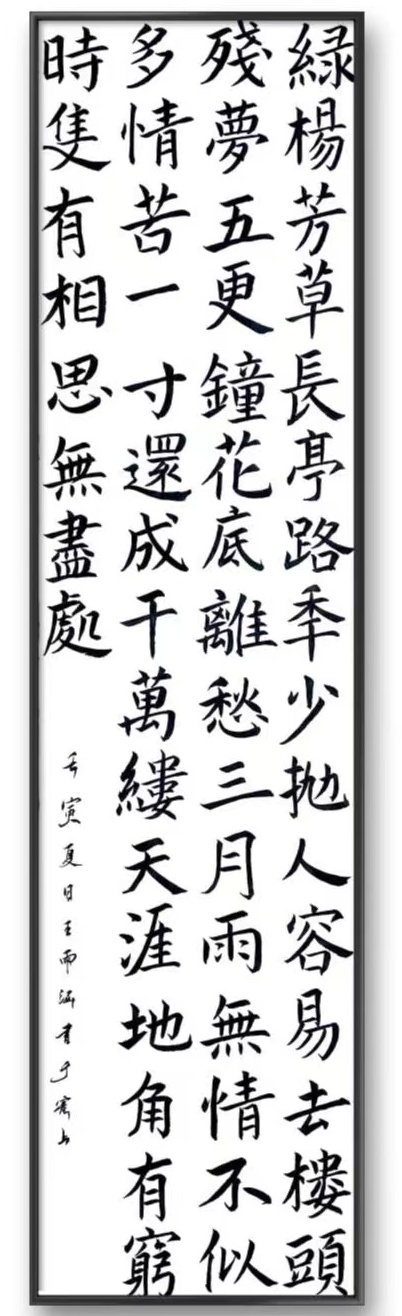 緑楊芳草長亭路秊少抛人容易去樓頭
殘夢五更鐘花底離愁三月雨無情不似
多情苦一寸還成千萬縷天涯地角有窮
時隻有相思無盡處
壬寅夏日王雨涵書于上